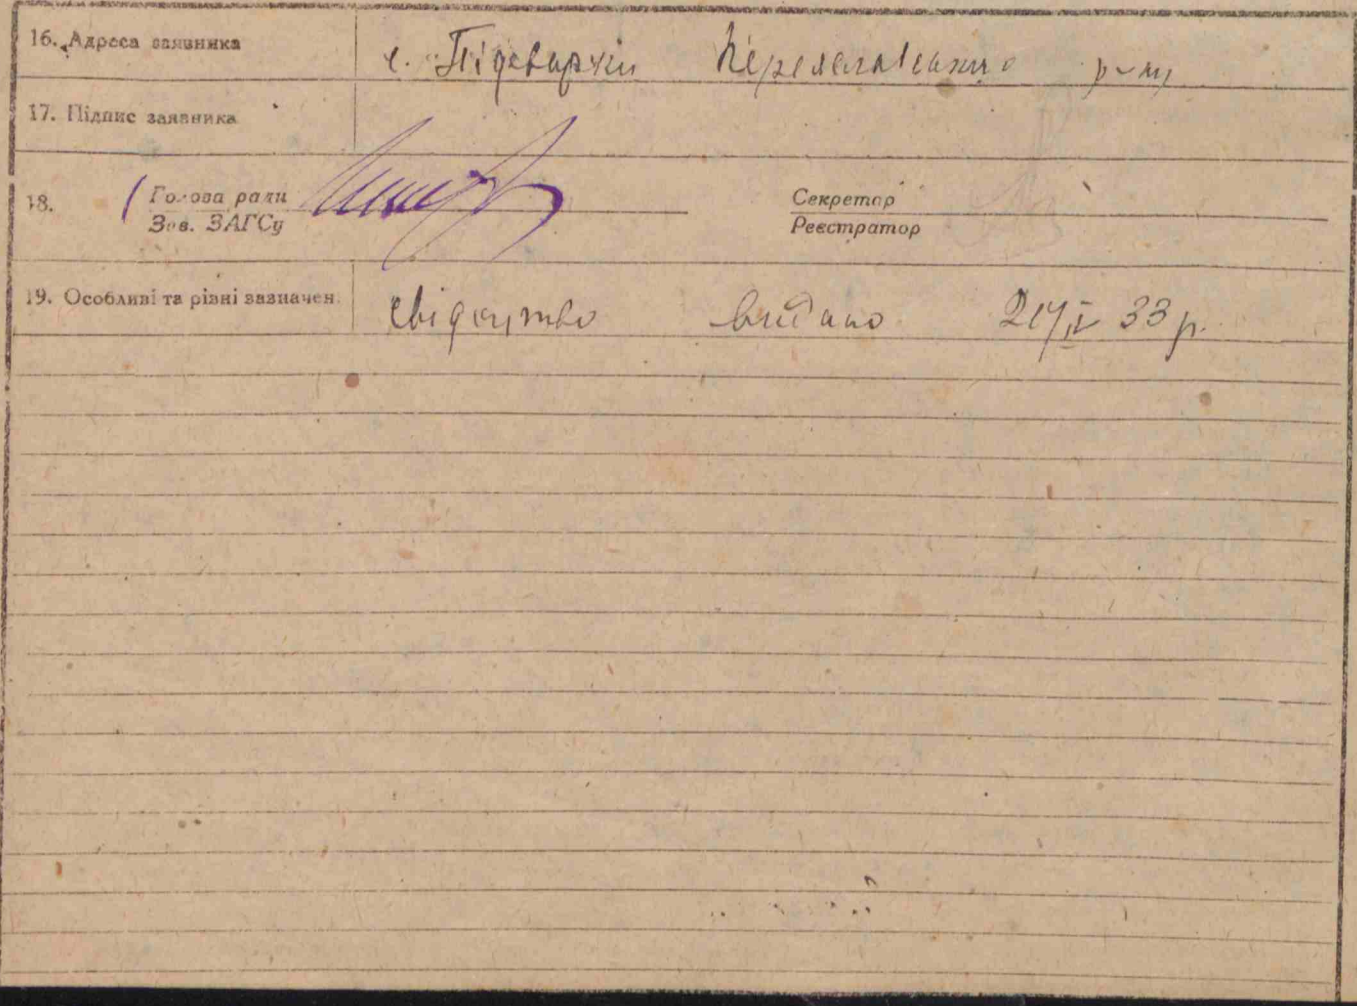 16. Адреса заявника с. Підварки Переяславського р-ну
17. Підпис заявника
18. Голова ради Секретар
Зав. ЗАГСу Реєстратор
19. Особливі та різні зазначен. свідоцтво видано 33 р.